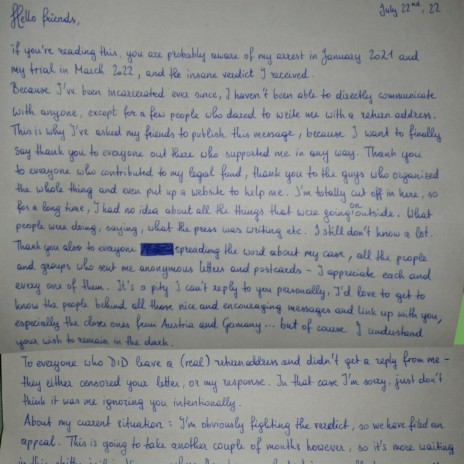 July 22nd, 22
Hello friends,
if you're reading this, you are probably aware of my arrest in January 2021 and
my trial in March 2022, and the insane verdict I received.
Because I've been incarcerated ever since, I haven't been able to directly communicate
with anyone, except for a few people who dared to write me with a return address.
This is why I've asked my friends to publish this message, because I want to finally
say thank you to everyone out there who supported me in any way. Thank you
to everyone who contributed to my legal fund, thank you to the guys who organized
the whole thing and even put up a website to help me. I'm totally cut off in here, so
for a long time, I had no idea about all the things that were going on outside. What
people were doing, saying, what the press was writing etc. I still don't know a lot.
Thank you also to everyone spreading the word about my case, all the people
and groups who sent me anonymous letters and postcards - I appreciate each and
every one of them. It's a pity I can't reply to you personally, I'd love to get to
know the people behind all those nice and encouraging messages and link up with you,
especially the closer ones from Austria and Germany... but of course I understand
your wish to remain in the dark.
To everyone who DID leave a (real) return address and didn't get a reply from me -
they either censored your letter, or my response. In that case I'm sorry, just don't
think it was me ignoring you intentionally.
About my current situation: I'm obviously fighting the verdict, so we have filed an
appeal. This is going to take another couple of months however, so it's more waiting
in this